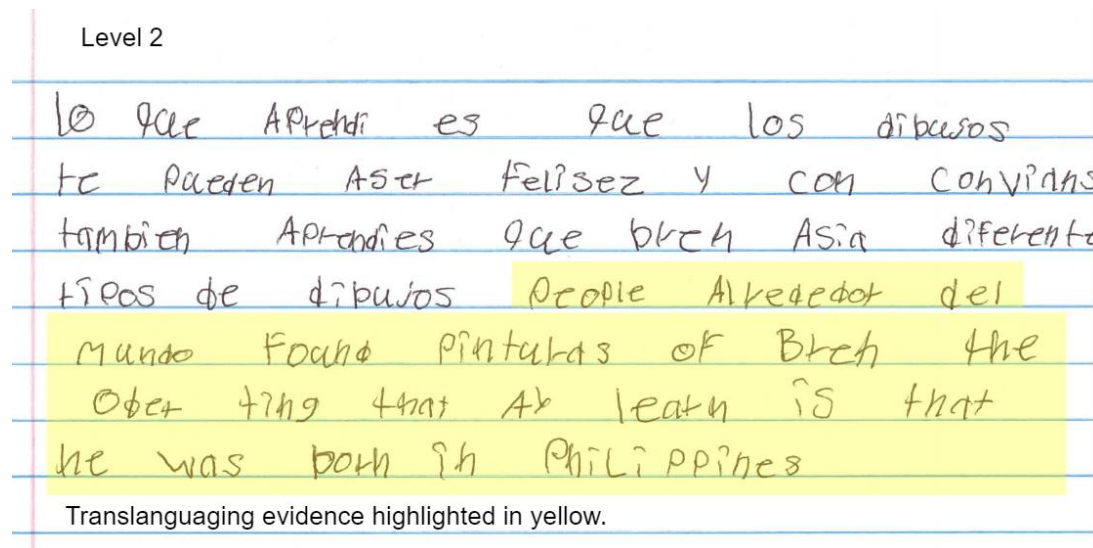 Level 2
lo que Aprendi es que los dibusos
te pueden Aser Felisez y con convians
tambien Aprendies que bren Asia diferente
tipos de dibujos People Alrededor del
mundo Found Pinturas of Bren the
Ober ting that learn is that
he was born in PhiLippines
Translanguaging evidence highlighted in yellow.